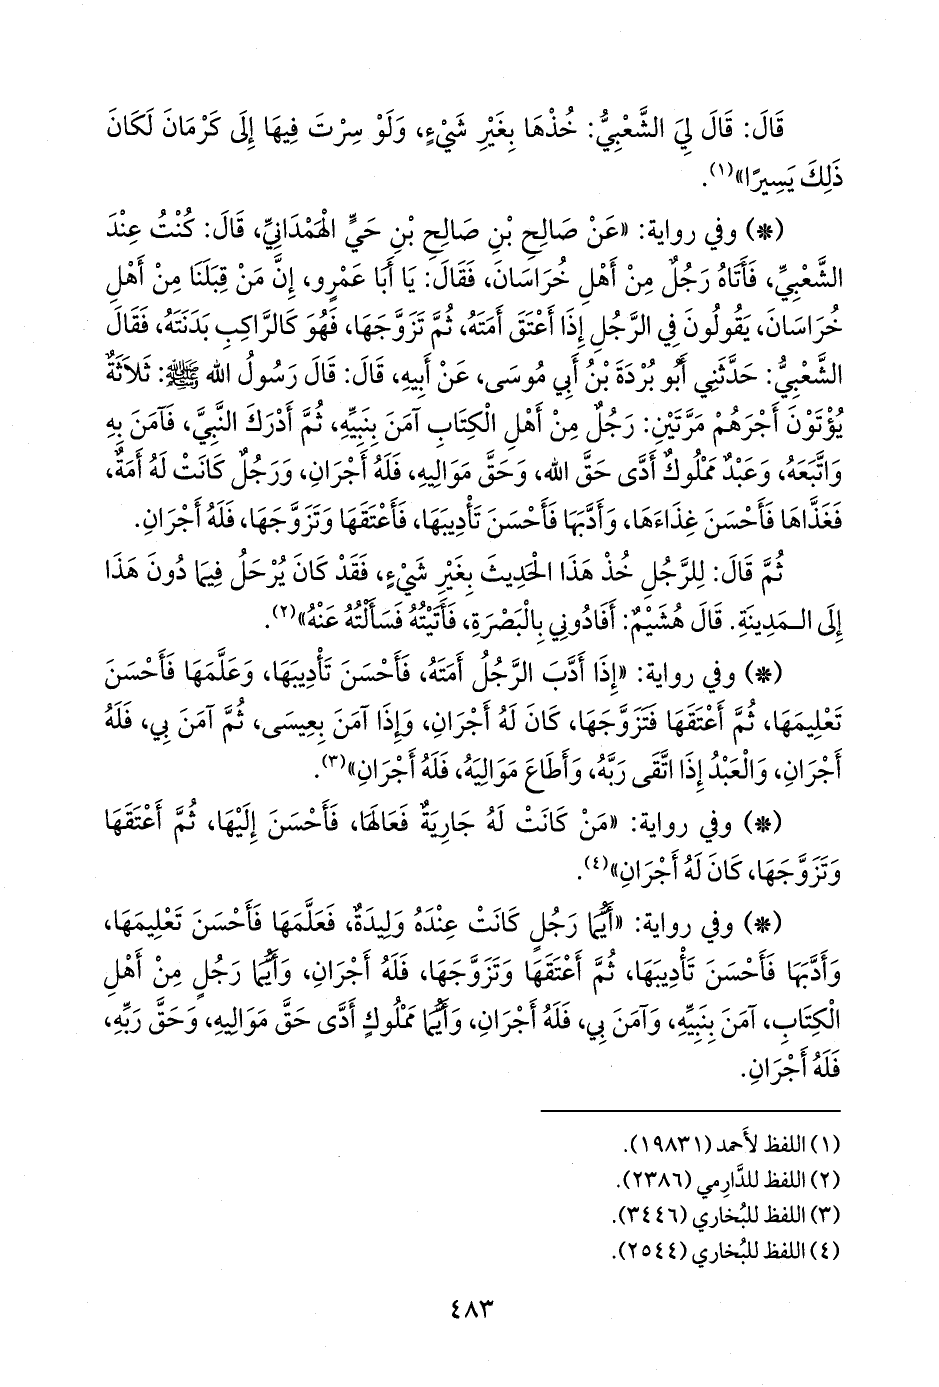 قَالَ: قَالَ لِيَ الشَّعْبِيُّ: خُذْهَا بِغَيْرِ شَيْءٍ، وَلَوْ سِرْتَ فِيهَا إِلَى كَرْمَانَ لَكَانَ
ذَلِكَ يَسِيرًا»(١).
(*) وفي رواية: «عَنْ صَالِحِ بْنِ صَالِحِ بْنِ حَيٍّ الْهَمْدَانِيِّ، قَالَ: كُنْتُ عِنْدَ
الشَّعْبِيِّ، فَأَتَاهُ رَجُلٌ مِنْ أَهْلِ خُرَاسَانَ، فَقَالَ: يَا أَبَا عَمْرٍو، إِنَّ مَنْ قِبَلَنَا مِنْ أَهْلِ
خُرَاسَانَ، يَقُولُونَ فِي الرَّجُلِ إِذَا أَعْتَقَ أَمَتَهُ، ثُمَّ تَزَوَّجَهَا، فَهُوَ كَالرَّاكِبِ بَدَنَتَهُ، فَقَالَ
الشَّعْبِيُّ: حَدَّثَنِي أَبُو بُرْدَةَ بْنُ أَبِي مُوسَى، عَنْ أَبِيهِ، قَالَ: قَالَ رَسُولُ الله ﷺ: ثَلَاثَةٌ
يُؤْتَوْنَ أَجْرَهُمْ مَرَّتَيْنِ: رَجُلٌ مِنْ أَهْلِ الْكِتَابِ آمَنَ بِنَبِيِّهِ، ثُمَّ أَدْرَكَ النَّبِيَّ، فَآمَنَ بِهِ
وَاتَّبَعَهُ، وَعَبْدٌ مَمْلُوكٌ أَدَّى حَقَّ الله، وَحَقَّ مَوَالِيهِ، فَلَهُ أَجْرَانِ، وَرَجُلٌ كَانَتْ لَهُ أَمَةٌ،
فَغَذَّاهَا فَأَحْسَنَ غِذَاءَهَا، وَأَدَّبَهَا فَأَحْسَنَ تَأْدِيبَهَا، فَأَعْتَقَهَا وَتَزَوَّجَهَا، فَلَهُ أَجْرَانِ.
ثُمَّ قَالَ: لِلرَّجُلِ خُذْ هَذَا الْحَدِيثَ بِغَيْرِ شَيْءٍ، فَقَدْ كَانَ يُرْحَلُ فِيمَا دُونَ هَذَا
إِلَى الـمَدِينَةِ. قَالَ هُشَيْمٌ: أَفَادُونِي بِالْبَصْرَةِ، فَأَتَيْتُهُ فَسَأَلْتُهُ عَنْهُ»(٢).
(*) وفي رواية: «إِذَا أَدَّبَ الرَّجُلُ أَمَتَهُ، فَأَحْسَنَ تَأْدِيبَهَا، وَعَلَّمَهَا فَأَحْسَنَ
تَعْلِيمَهَا، ثُمَّ أَعْتَقَهَا فَتَزَوَّجَهَا، كَانَ لَهُ أَجْرَانِ، وَإِذَا آمَنَ بِعِيسَى، ثُمَّ آمَنَ بِي، فَلَهُ
أَجْرَانِ، وَالْعَبْدُ إِذَا اتَّقَى رَبَّهُ، وَأَطَاعَ مَوَالِيَهُ، فَلَهُ أَجْرَانِ»(٣).
(*) وفي رواية: «مَنْ كَانَتْ لَهُ جَارِيَةٌ فَعَالَهَا، فَأَحْسَنَ إِلَيْهَا، ثُمَّ أَعْتَقَهَا
وَتَزَوَّجَهَا، كَانَ لَهُ أَجْرَانِ»(٤).
(*) وفي رواية: «أَيُّمَا رَجُلٍ كَانَتْ عِنْدَهُ وَلِيدَةٌ، فَعَلَّمَهَا فَأَحْسَنَ تَعْلِيمَهَا،
وَأَدَّبَهَا فَأَحْسَنَ تَأْدِيبَهَا، ثُمَّ أَعْتَقَهَا وَتَزَوَّجَهَا، فَلَهُ أَجْرَانِ، وَأَيُّمَا رَجُلٍ مِنْ أَهْلِ
الْكِتَابِ، آمَنَ بِنَبِيِّهِ، وَآمَنَ بِي، فَلَهُ أَجْرَانِ، وَأَيُّمَا مَمْلُوكٍ أَدَّى حَقَّ مَوَالِيهِ، وَحَقَّ رَبِّهِ،
فَلَهُ أَجْرَانِ.
(١) اللفظ لأَحمد (١٩٨٣١).
(٢) اللفظ للدَّارِمي (٢٣٨٦).
(٣) اللفظ للبُخاري (٣٤٤٦).
(٤) اللفظ للبُخاري (٢٥٤٤).
٤٨٣